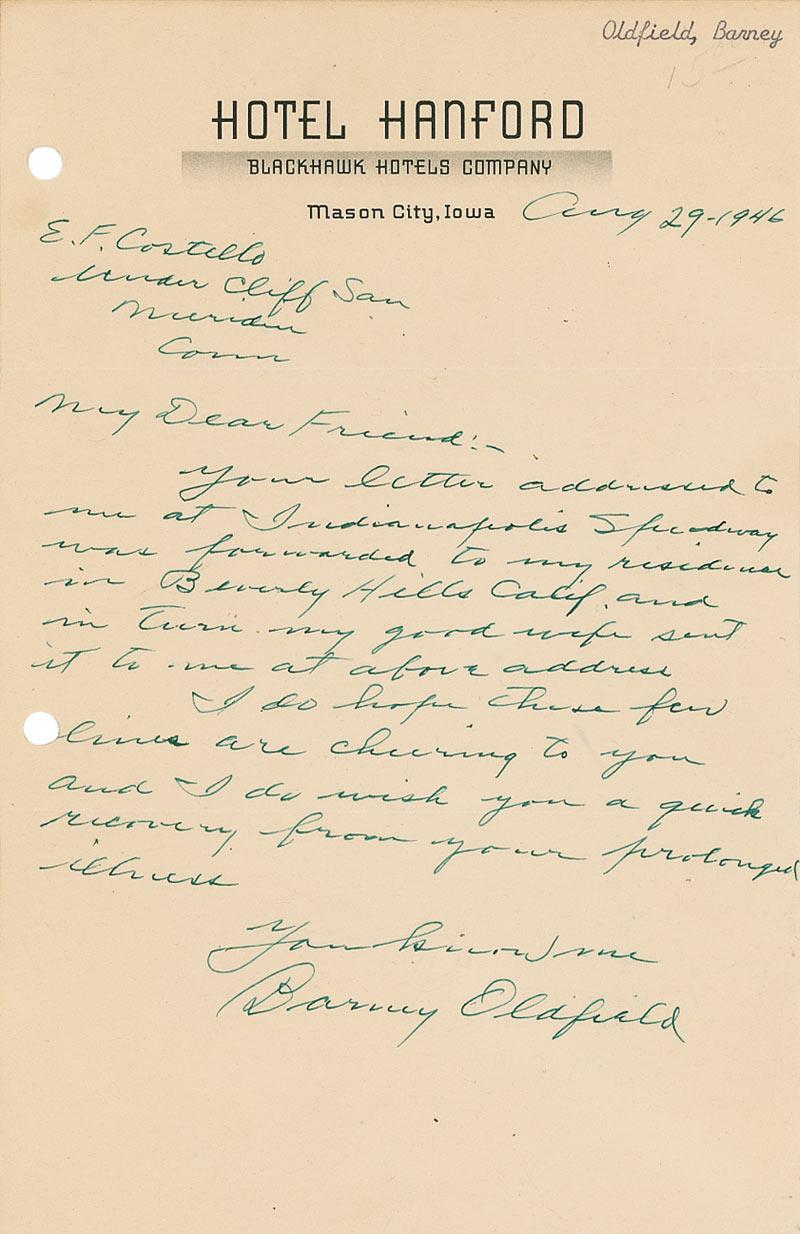 Oldfield, Barney
15
HOTEL HANFORD
BLACKHAWK HOTELS COMPANY
Mason City, Iowa Aug 29-1946
E. F. Costello
Under Cliff San
Meriden
Conn
My Dear Friend:-
Your letter addressed to
me at Indianapolis Speedway
was forwarded to my residence
in Beverly Hills Calif. and
in turn my good wife sent
it to me at above address
I do hope these few
lines are cheering to you
and I do wish you a quick
recovery from your prolonged
illness
You know me
Barney Oldfield